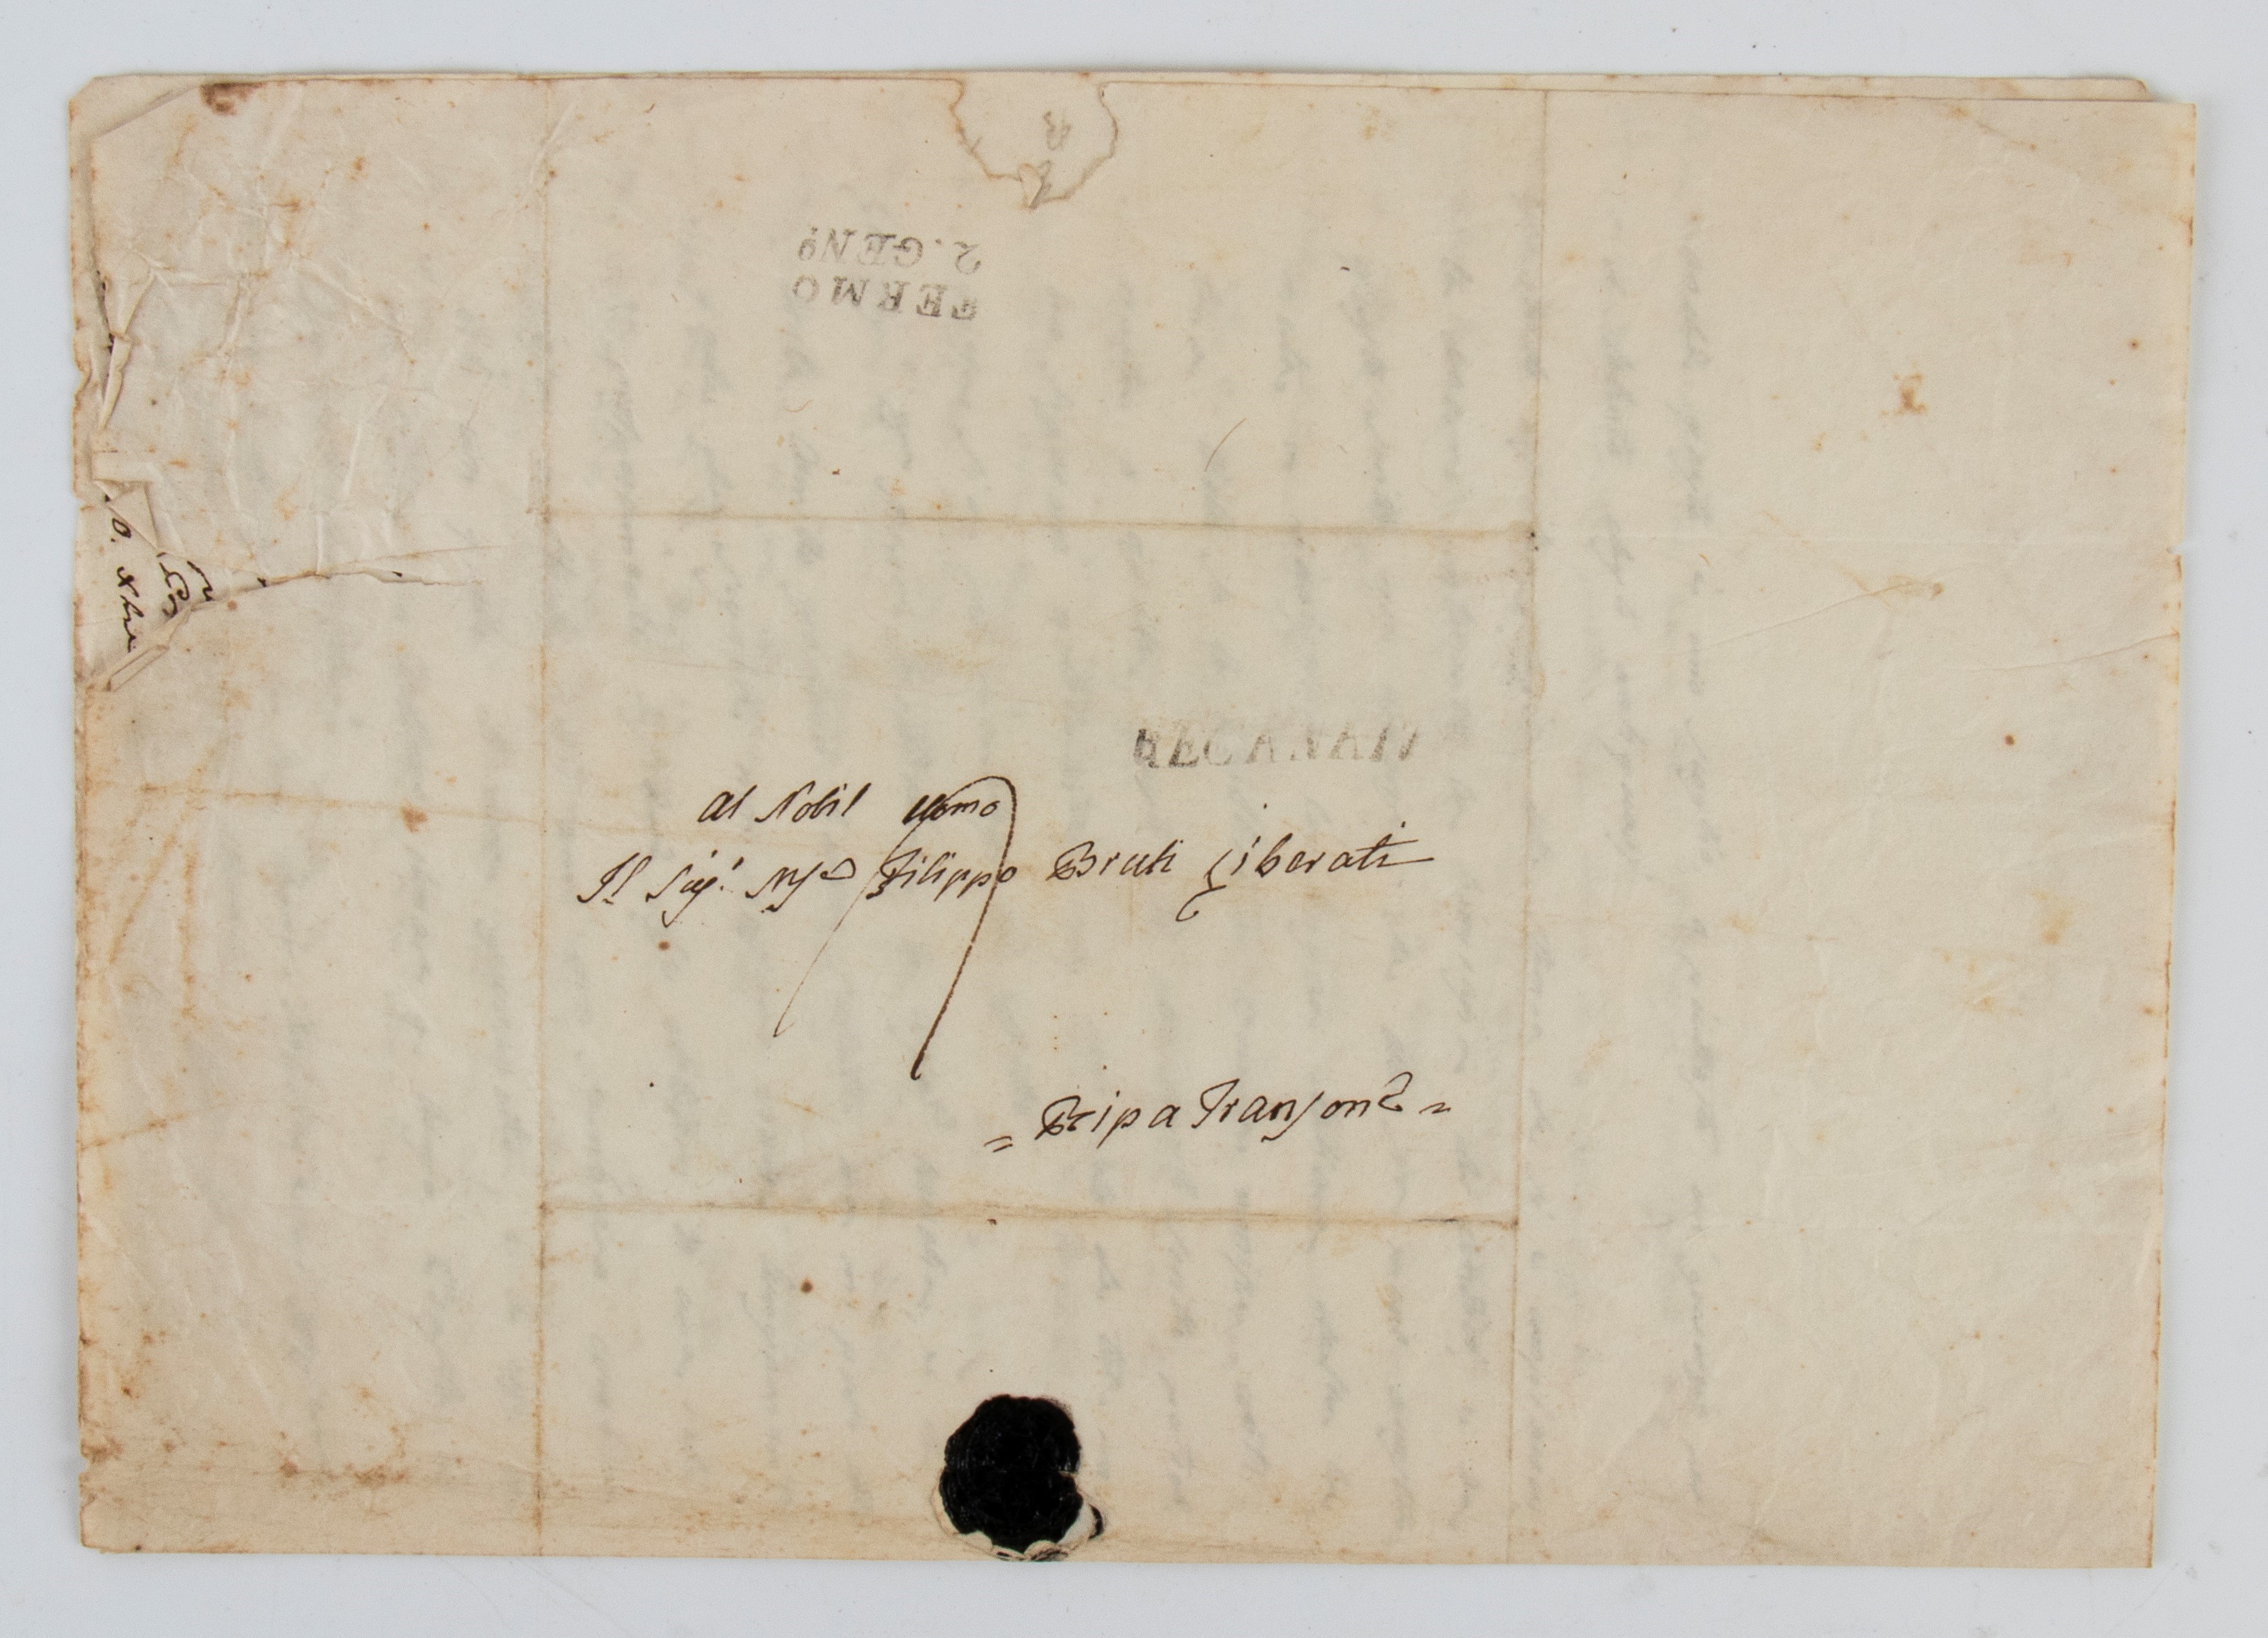 FERMO
2. GENº
RECANATI
Al Nobil Uomo
Il Sigʳ Mſᵉ Filippo Bruti Liberati
= Ripa Tranſonᵉ =